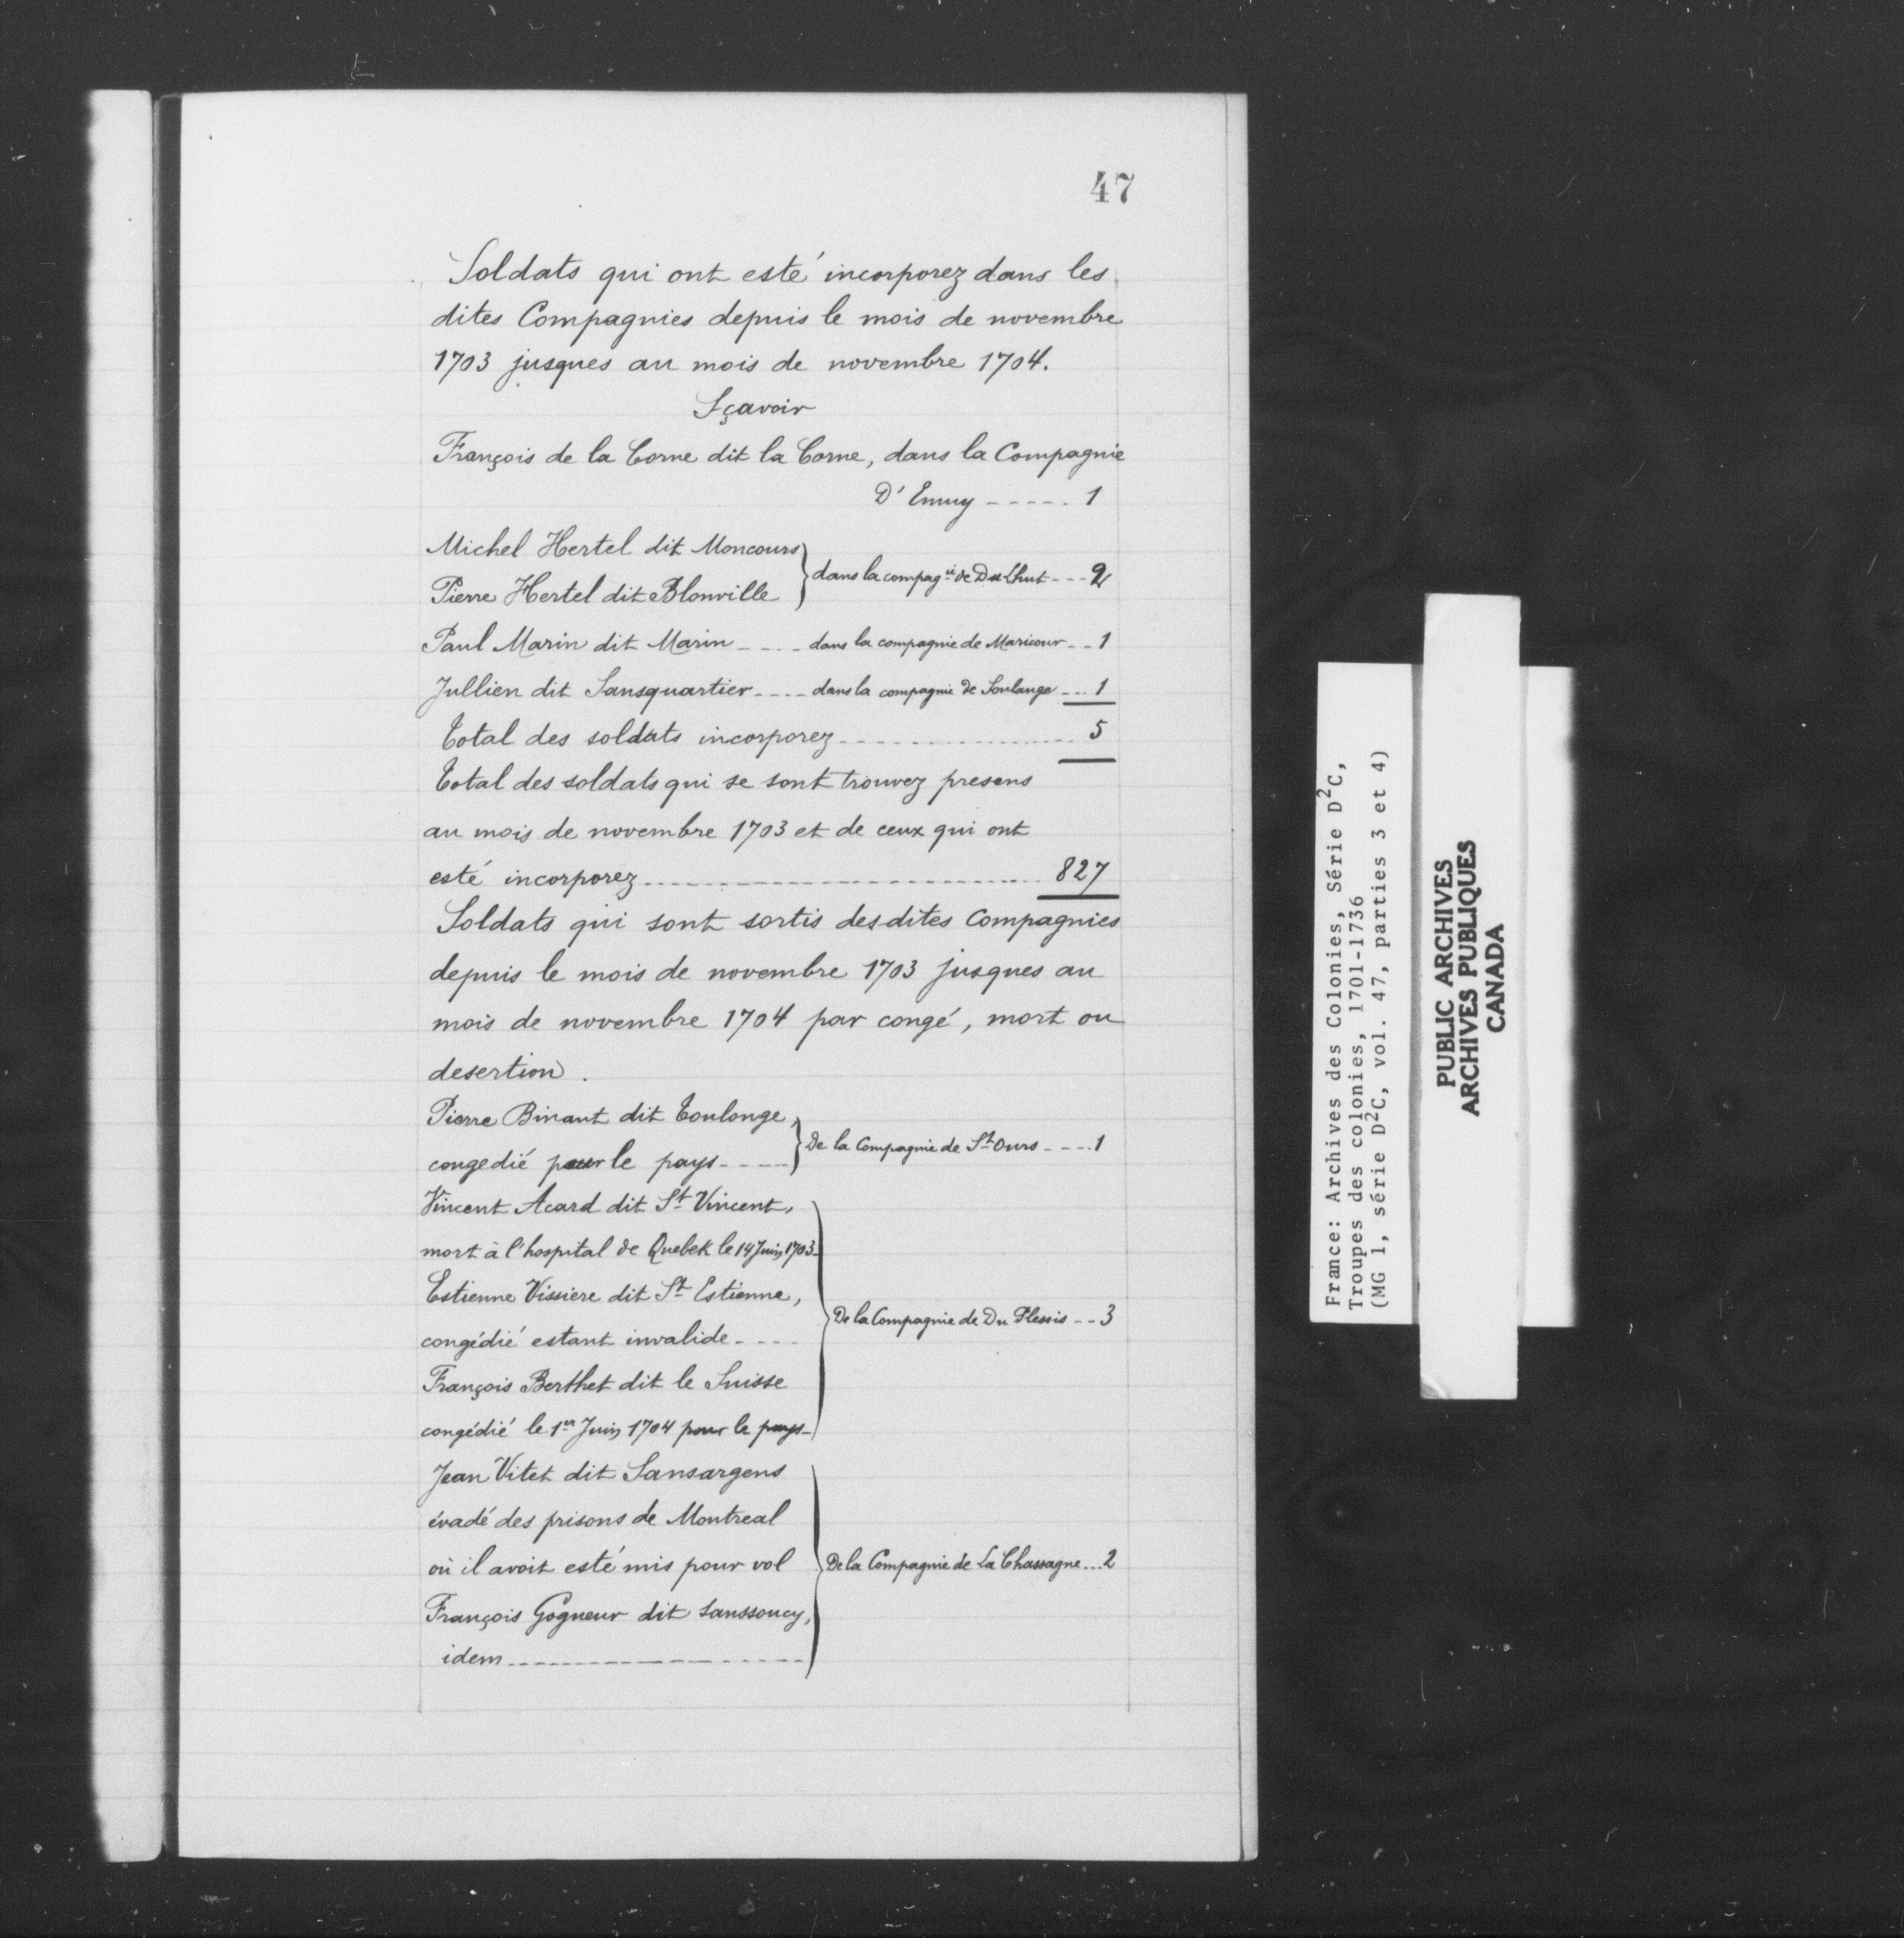 47
Soldats qui ont esté incorporez dans les
dites Compagnies depuis le mois de novembre
1703 jusques au mois de novembre 1704.
Sçavoir
François de la Corne dit la Corne, dans la Compagnie
D'Enuy ----- 1
Michel Hertel dit Moncours
Pierre Hertel dit Blonville } dans la compagie de Du Lhut --- 2
Paul Marin dit Marin ---- dans la compagnie de Maricour -- 1
Jullien dit Sansquartier ---- dans la compagnie de Soulange --- 1
Total des soldats incorporez ---------------- 5
Total des soldats qui se sont trouvez presens
au mois de novembre 1703 et de ceux qui ont
esté incorporez ---------------------- 827
Soldats qui sont sortis desdites Compagnies
depuis le mois de novembre 1703 jusques au
mois de novembre 1704 par congé, mort ou
desertion.
Pierre Binant dit Toulonge,
congedié pour le pays ---- } De la Compagnie de St Ours ---- 1
Vincent Acard dit St Vincent,
mort à l'hospital de Quebek le 14 Juin 1703-
Estienne Vissiere dit St Estienne,
congédié estant invalide ---- } De la Compagnie de Du Plessis -- 3
François Berthet dit le Suisse
congédié le 1er Juin 1704 pour le pays-
Jean Vitet dit Sansargens
évadé des prisons de Montreal
où il avoit esté mis pour vol } De la Compagnie de La Chassagne --- 2
François Gogneur dit Sanssoucy,
idem --------------------
France: Archives des Colonies, Série D²C,
Troupes des colonies, 1701-1736
(MG 1, série D²C, vol. 47, parties 3 et 4)
PUBLIC ARCHIVES
ARCHIVES PUBLIQUES
CANADA